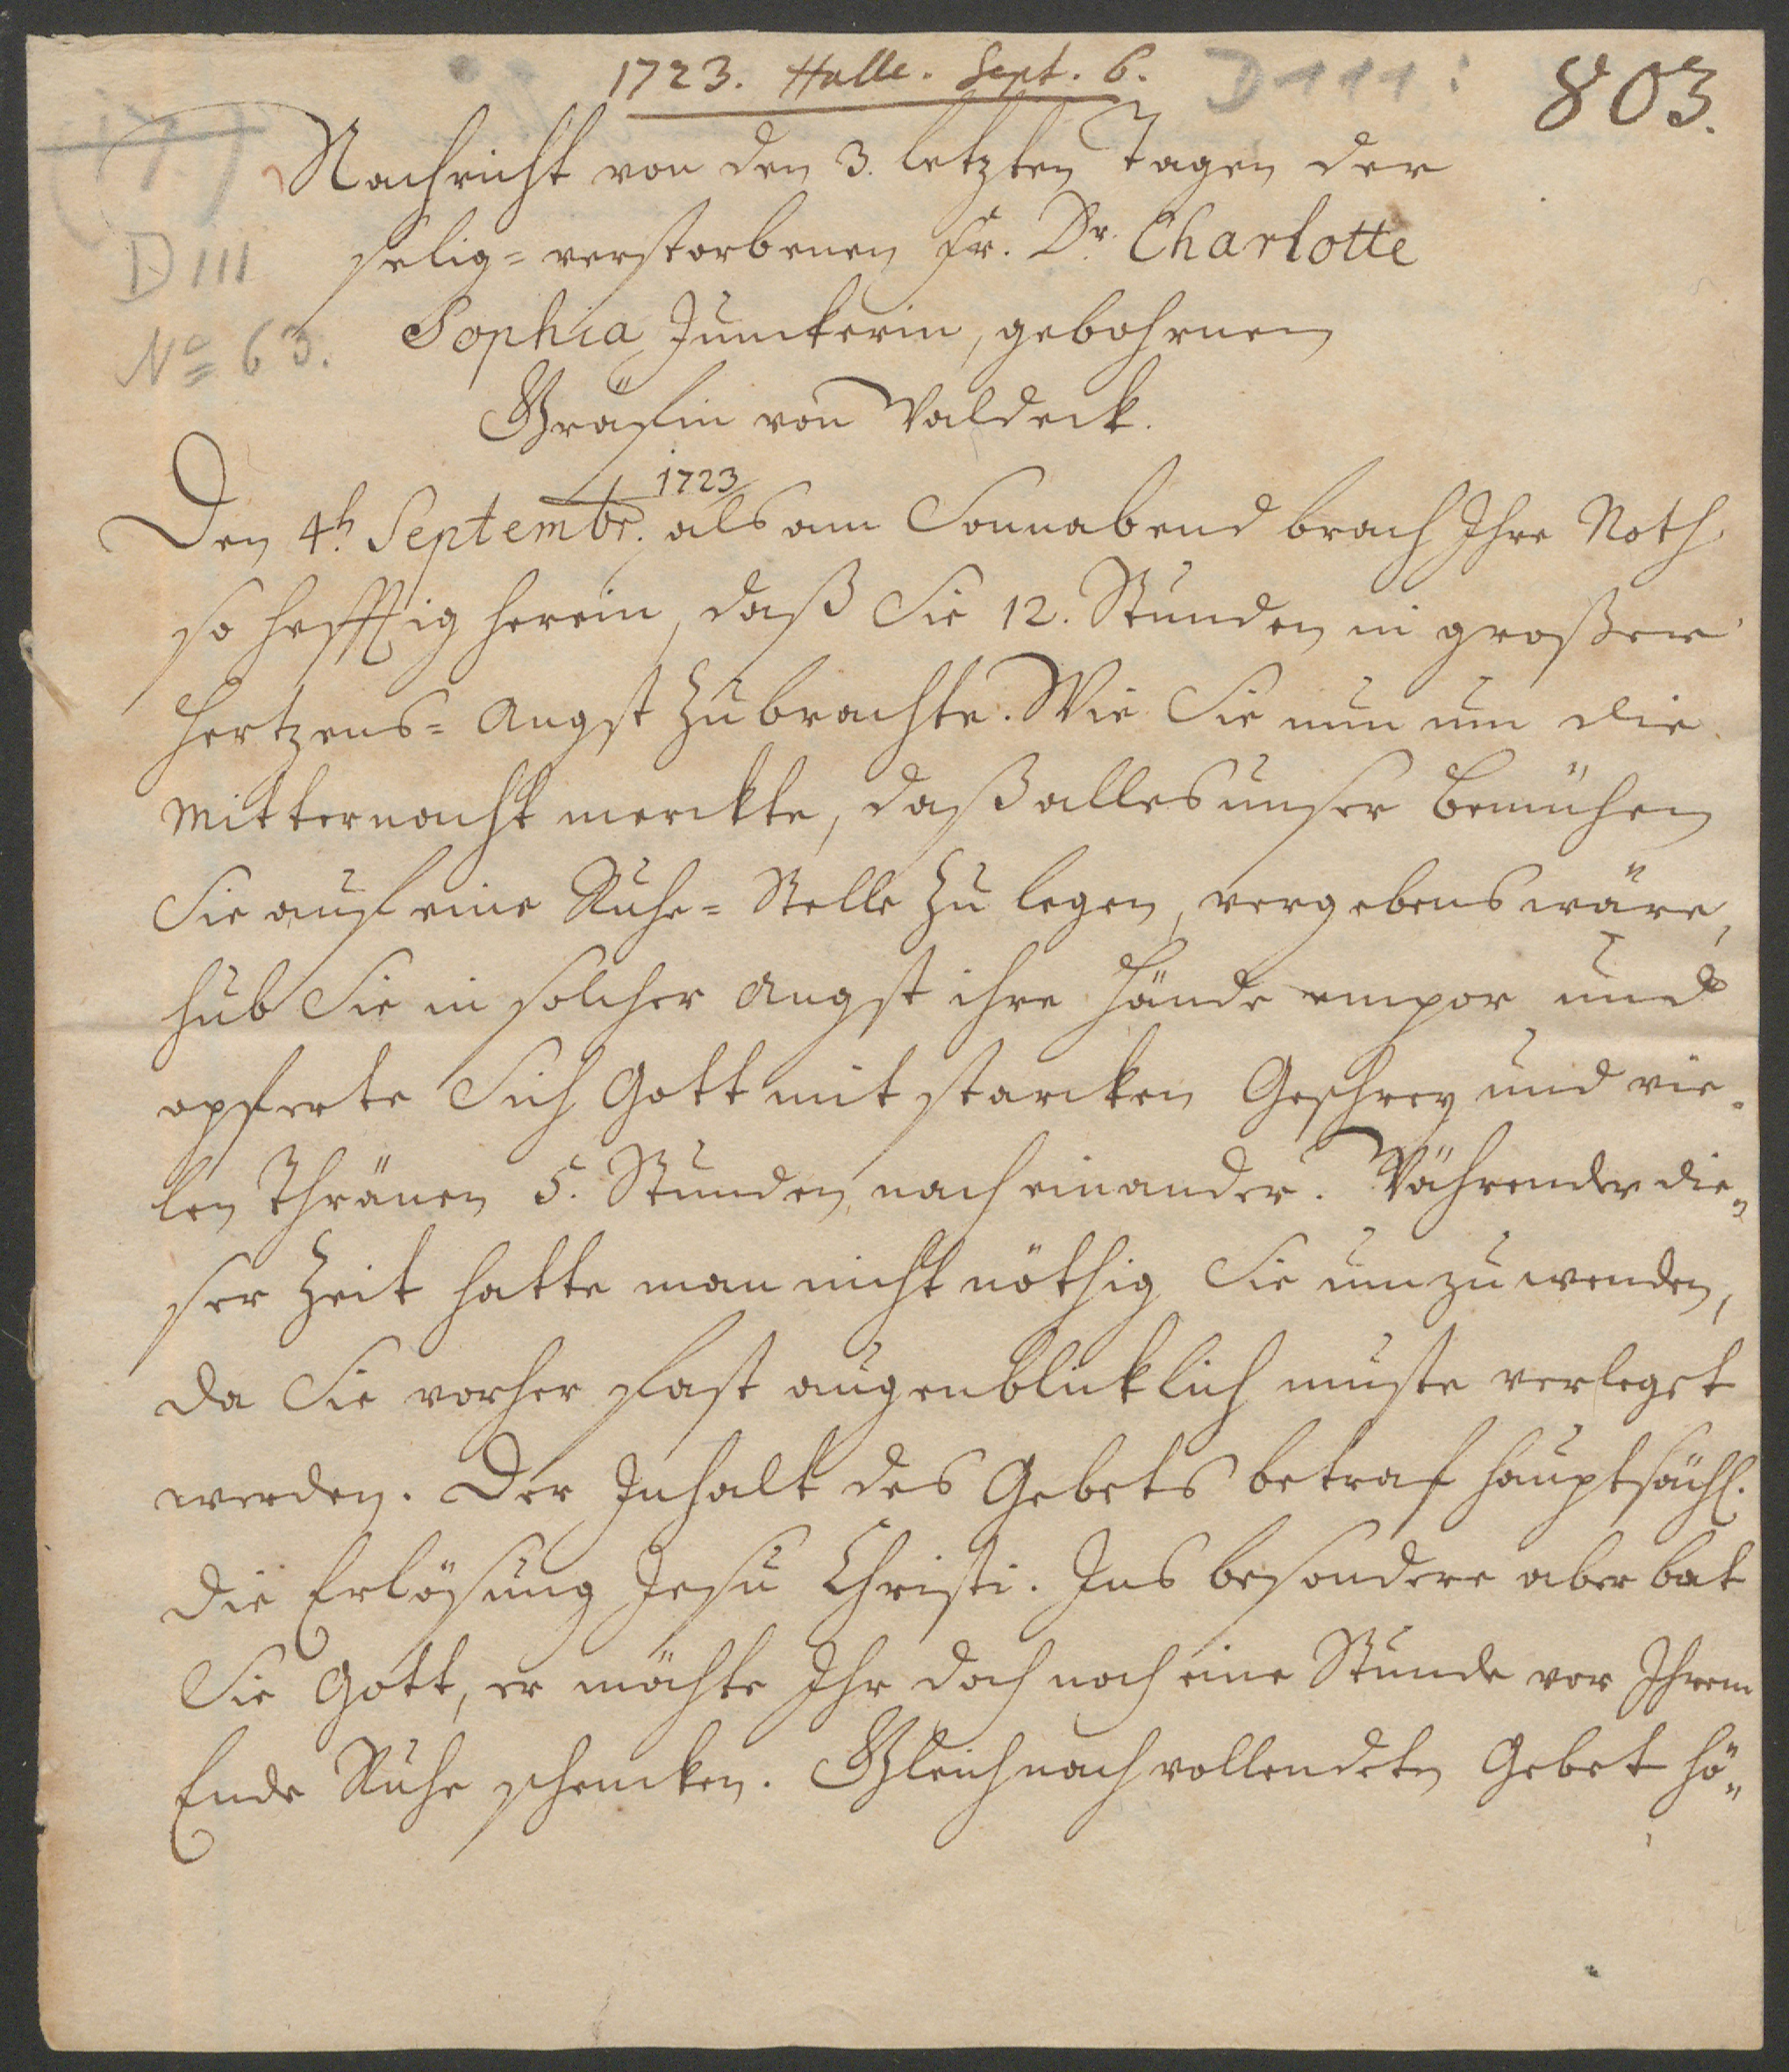 1723. Halle. Sept. 6.
D 111:
803.
D III
No 63.
Nachricht von den 3. letzten Tagen der
selig-verstorbenen Fr. Dr. Charlotte
Sophia Junckerin, gebohrnen
Gräfin von Waldeck.
1723
Den 4t. Septembr. als am Sonnabend brach Ihre Noth
so hefftig herein, daß Sie 12. Stunden in großer
Hertzens-Angst zubrachte. Wie Sie nun um die
Mitternacht merckte, daß alles unser Bemühen
Sie auf eine Ruhe-Stelle zu legen, vergebens wäre,
hub Sie in solcher Angst ihre Hände empor und
opferte Sich Gott mit starcken Geschrey und vie-
len Thränen 5. Stunden nach einander. Währender die-
ser Zeit hatte man nicht nöthig Sie umzuwenden,
da Sie vorher fast augenblicklich muste verleget
werden. Der Inhalt des Gebets betraf hauptsächl.
die Erlösung Jesu Christi. Ins besondere aber bat
Sie Gott, er möchte Ihr doch noch eine Stunde vor Ihrem
Ende Ruhe schencken. Gleich nach vollendetn Gebet hö-